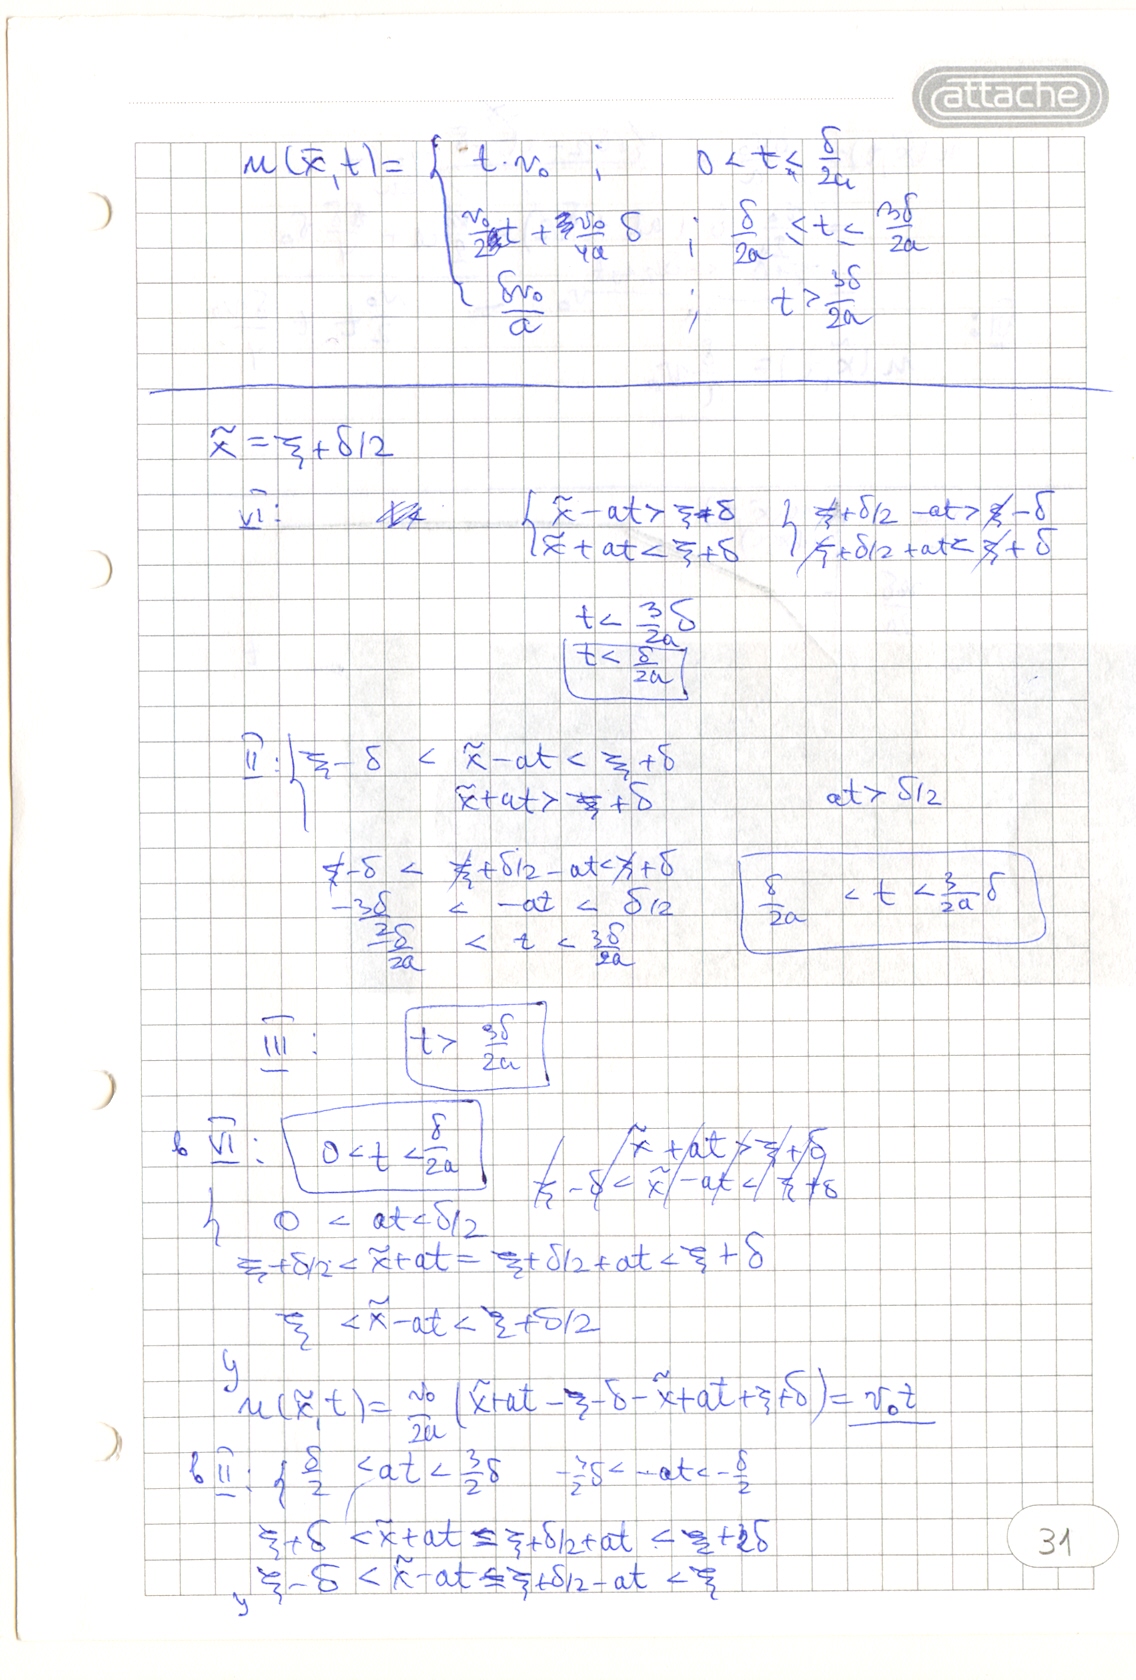 attache
u(x̃,t)= { t·v₀ ; 0 < t ≤ δ/2a
v₀/2 t + v₀/4a δ ; δ/2a ≤ t ≤ 3δ/2a
δv₀/a ; t > 3δ/2a
x̃ = ξ+δ/2
VI: { x̃-at>ξ-δ { ξ+δ/2-at>ξ-δ
x̃+at<ξ+δ ξ+δ/2+at<ξ+δ
t< 3/2a δ
t< δ/2a
II: { ξ-δ < x̃-at < ξ+δ
x̃+at>ξ+δ at> δ/2
ξ-δ < ξ+δ/2-at<ξ+δ
-3δ/2 < -at < δ/2 δ/2a < t < 3/2a δ
-δ/2a < t < 3δ/2a
III: t> 3δ/2a
в VI: 0<t<δ/2a x̃+at>ξ+δ
ξ-δ< x̃-at< ξ+δ
{ 0 < at<δ/2
ξ+δ/2< x̃+at=ξ+δ/2+at<ξ+δ
ξ < x̃-at< ξ+δ/2
у
u(x̃,t)= v₀/2a (x̃+at-ξ-δ-x̃+at+ξ+δ)= v₀t
в II: { δ/2 <at< 3/2 δ -3/2 δ< -at<-δ/2
ξ+δ < x̃+at = ξ+δ/2+at < ξ+2δ
ξ-δ < x̃-at = ξ+δ/2-at < ξ
у
31